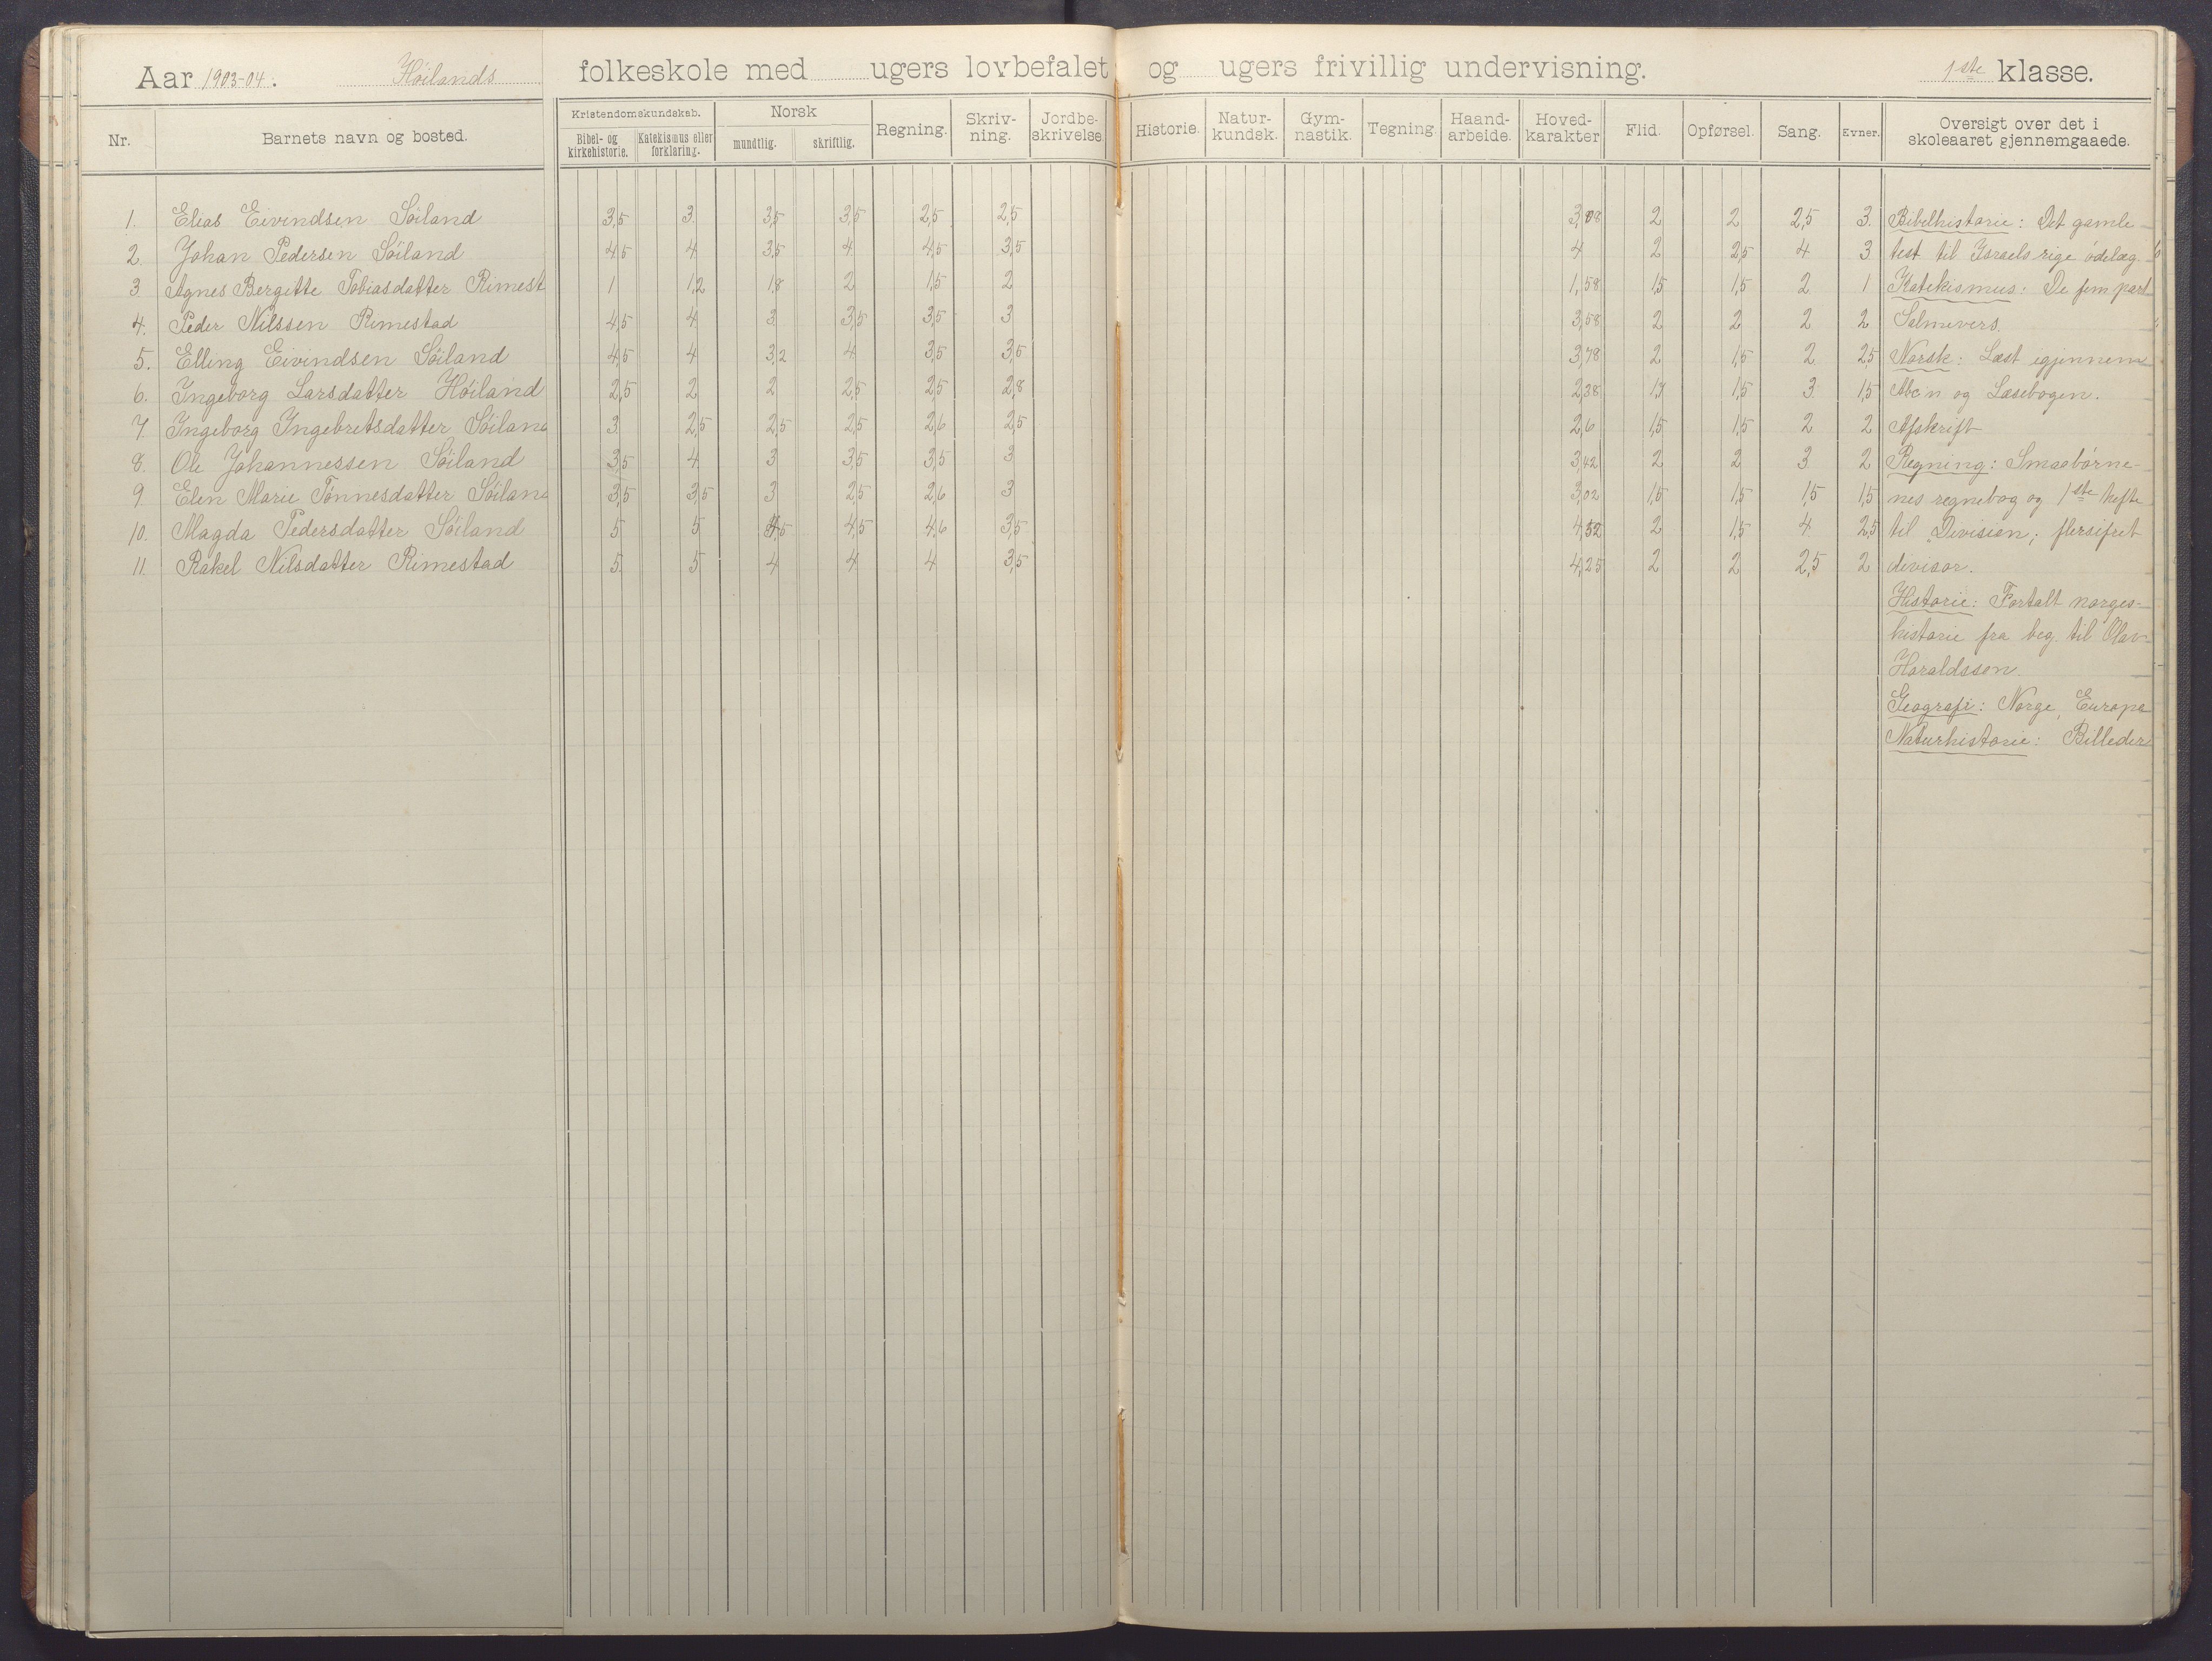 Aar 1903-04. Höilands folkeskole med ugers lovbefalet og ugers frivillig undervisning. 1ste klasse.
Nr. Barnets navn og bosted. Kristendomskundskab. Bibel- og kirkehistorie. Katekismus eller forklaring. Norsk mundtlig. skriftlig. Regning. Skriv-ning. Jordbe-skrivelse. Historie. Natur-kundsk. Gym-nastik. Tegning. Haand-arbeide. Hoved-karakter Flid. Opførsel. Sang. Evner. Oversigt over det i skoleaaret gjennemgaaede.
1. Elias Eivindsen Söiland 3,5 3 3,5 3,5 2,5 2,5 3,08 2 2 2,5 3. Bibelhistorie: Det gamle
2. Johan Pedersen Söiland 4,5 4 3,5 4 4,5 3,5 4 2 2,5 4 3 test til Israels rige ödelæg
3. Agnes Bergitte Tobiasdatter Rimest 1 1,2 1,8 2 1,5 2 1,58 1,5 1,5 2 1 Katekismus: De fem part
4. Peder Nilssen Rimestad 4,5 4 3 3,5 3,5 3 3,58 2 2 2 2 Salmevers.
5. Elling Eivindsen Söiland 4,5 4 3,2 4 3,5 3,5 3,78 2 1,5 2 2,5 Norsk: Læst igjennem
6. Ingeborg Larsdatter Höiland 2,5 2 2 2,5 2,5 2,8 2,38 1,7 1,5 3 1,5 Abc'n og Læsebogen.
7. Ingeborg Ingebretsdatter Söiland 3 2,5 2,5 2,5 2,6 2,5 2,6 1,5 1,5 2 2 Afskrift
8. Ole Johannessen Söiland 3,5 4 3 3,5 3,5 3 3,42 2 2 3 2 Regning: Smaabörne-
9. Elen Marie Tönnesdatter Söiland 3,5 3,5 3 2,5 2,6 3 3,02 1,5 1,5 1,5 1,5 nes regnebog og 1ste hefte
10. Magda Pedersdatter Söiland 5 5 4,5 4,5 4,6 3,5 4,52 2 1,5 4 2,5 til Division; flersifret
11. Rakel Nilsdatter Rimestad 5 5 4 4 4 3,5 4,25 2 2 2,5 2 divisor.
Historie: Fortalt norges-
historie fra beg. til Olav
Haraldssen.
Geografi: Norge, Europa
Naturhistorie: Billeder